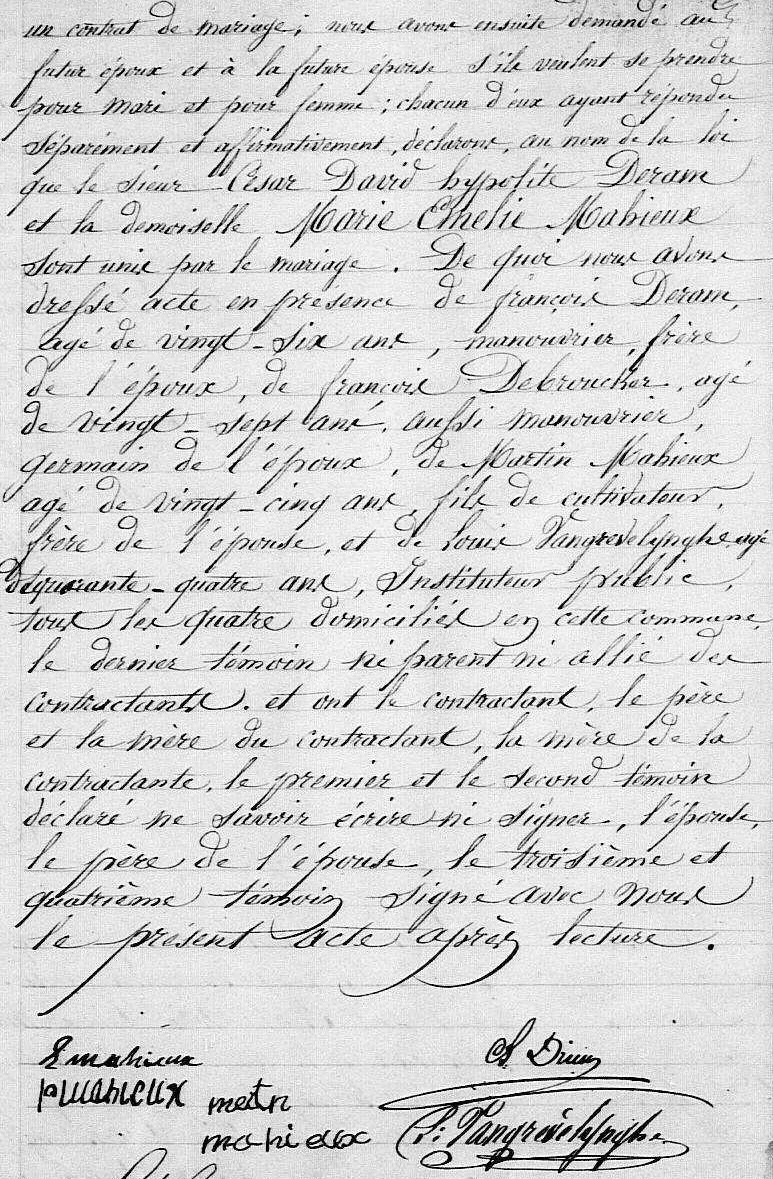 un contrat de mariage; nous avons ensuite demandé au
futur époux et à la future épouse s'ils veulent se prendre
pour mari et pour femme; chacun d'eux ayant répondu
séparément et affirmativement, déclarons, au nom de la loi
que le sieur César David hypolite Deram
et la demoiselle Marie Emelie Mahieux
sont unis par le mariage. De quoi nous avons
dressé acte en présence de françois Deram,
agé de vingt-six ans, manouvrier, frère
de l'époux, de françois Debroucker, agé
de vingt-sept ans, aussi manouvrier,
germain de l'époux, de Martin Mahieux
agé de vingt-cinq ans, fils de cultivateur,
frère de l'épouse, et de louis Vangrevelynghe, agé
de quarante-quatre ans, Instituteur public,
tous les quatre domiciliés en cette commune,
le dernier témoin ni parent ni allié des
contractants. et ont le contractant, le père
et la mère du contractant, la mère de la
contractante, le premier et le second témoin
déclaré ne savoir écrire ni signer, l'épouse,
le père de l'épouse, le troisième et
quatrième témoin signé avec nous
le présent acte après lecture.
E mahieux
p mahieux
mahieux
L. Vangrevelynghe